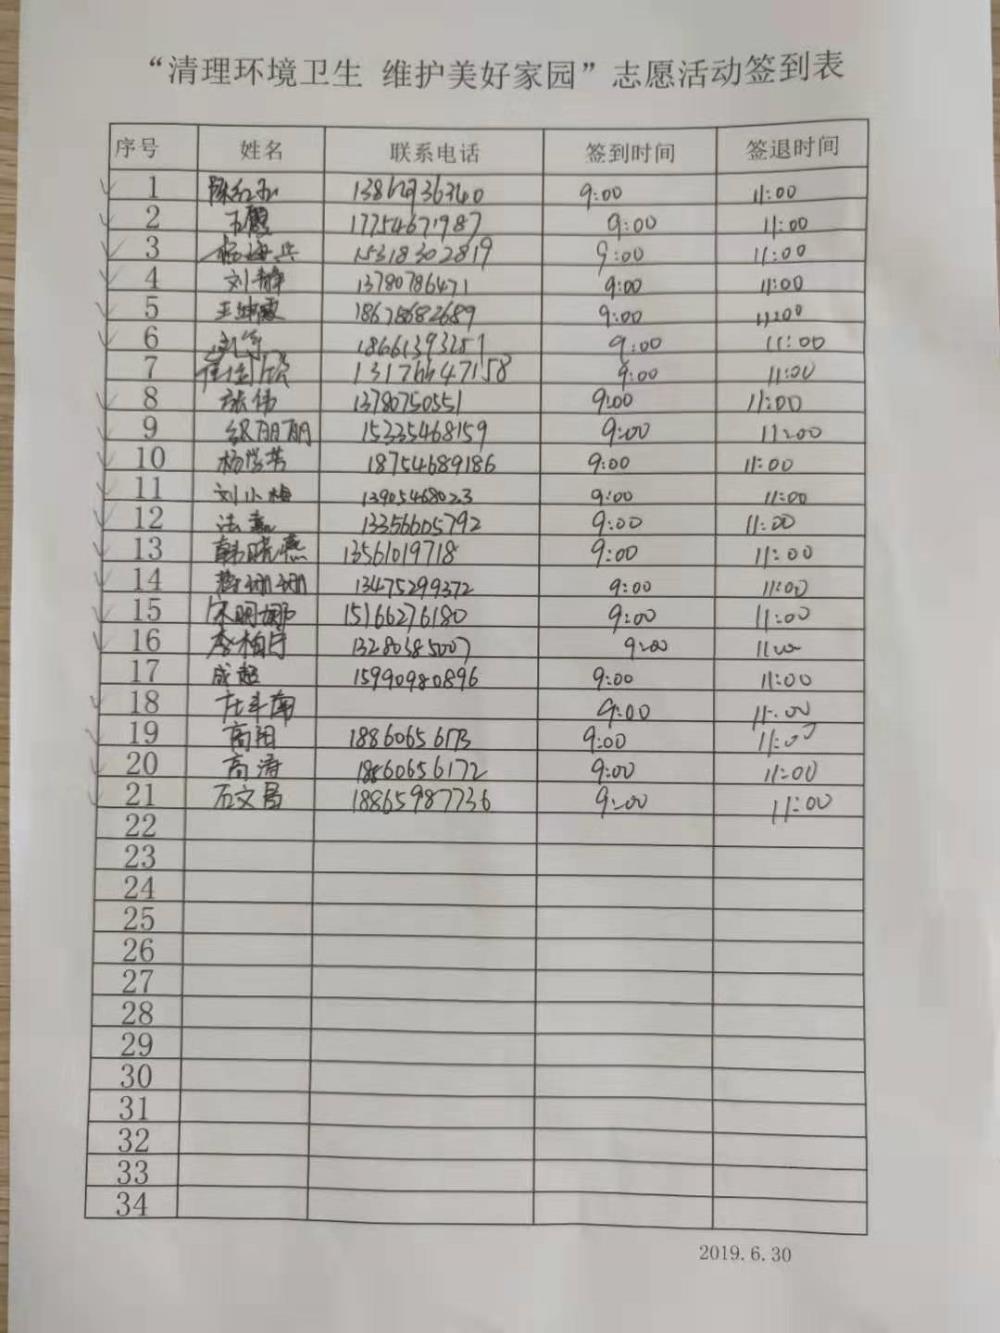 “清理环境卫生 维护美好家园”志愿活动签到表
序号 姓名 联系电话 签到时间 签退时间
1 9:00 11:00
2 17754671987 9:00 11:00
3 杨海兵 15318302819 9:00 11:00
4 刘静 13780786471 9:00 11:00
5 王坤霞 18678682689 9:00 11:00
6 18661393251 9:00 11:00
7 9:00 11:00
8 张伟 13780750551 9:00 11:00
9 15335468159 9:00 11:00
10 18754689186 9:00 11:00
11 刘小梅 13905468023 9:00 11:00
12 13356605792 9:00 11:00
13 韩晓燕 13561019718 9:00 11:00
14 13475299372 9:00 11:00
15 宋明娜 15166276180 9:00 11:00
16 9:00 11:00
17 成超 15990980896 9:00 11:00
18 9:00 11:00
19 高阳 9:00 11:00
20 高涛 18860656172 9:00 11:00
21 石文昌 18865987736 9:00 11:00
22
23
24
25
26
27
28
29
30
31
32
33
34
2019.6.30